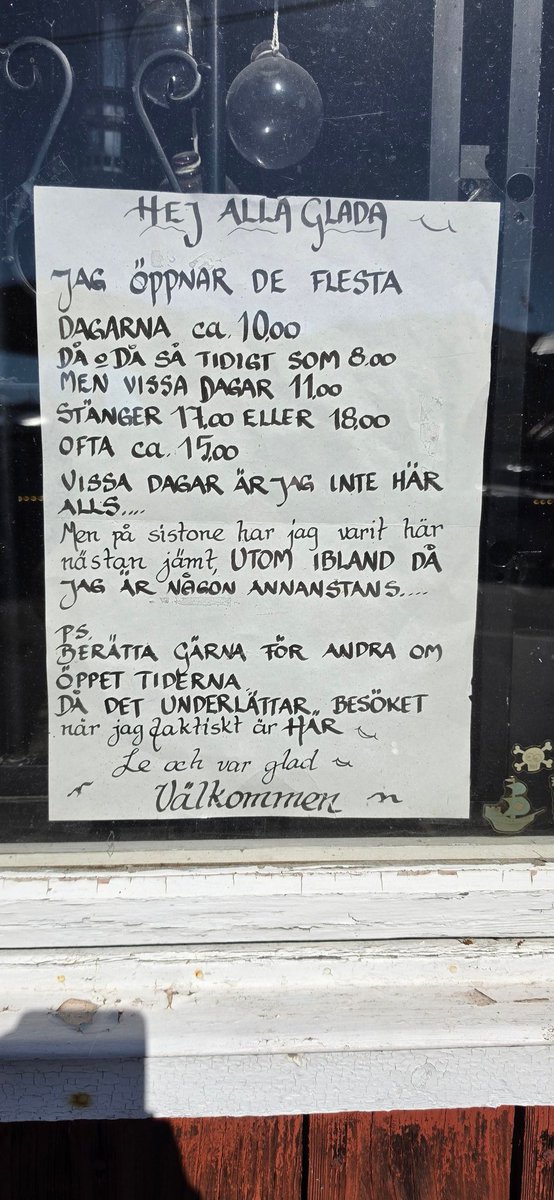 HEJ ALLA GLADA
JAG ÖPPNAR DE FLESTA
DAGARNA ca. 10,00
DÅ o DÅ SÅ TIDIGT SOM 8.00
MEN VISSA DAGAR 11,00
STÄNGER 17,00 ELLER 18,00
OFTA ca. 15,00
VISSA DAGAR ÄR JAG INTE HÄR
ALLS....
Men på sistone har jag varit här
nästan jämt, UTOM IBLAND DÅ
JAG ÄR NÅGON ANNANSTANS....
PS.
BERÄTTA GÄRNA FÖR ANDRA OM
ÖPPET TIDERNA
DÅ DET UNDERLÄTTAR BESÖKET
när jag faktiskt är HÄR
Le och var glad
Välkommen